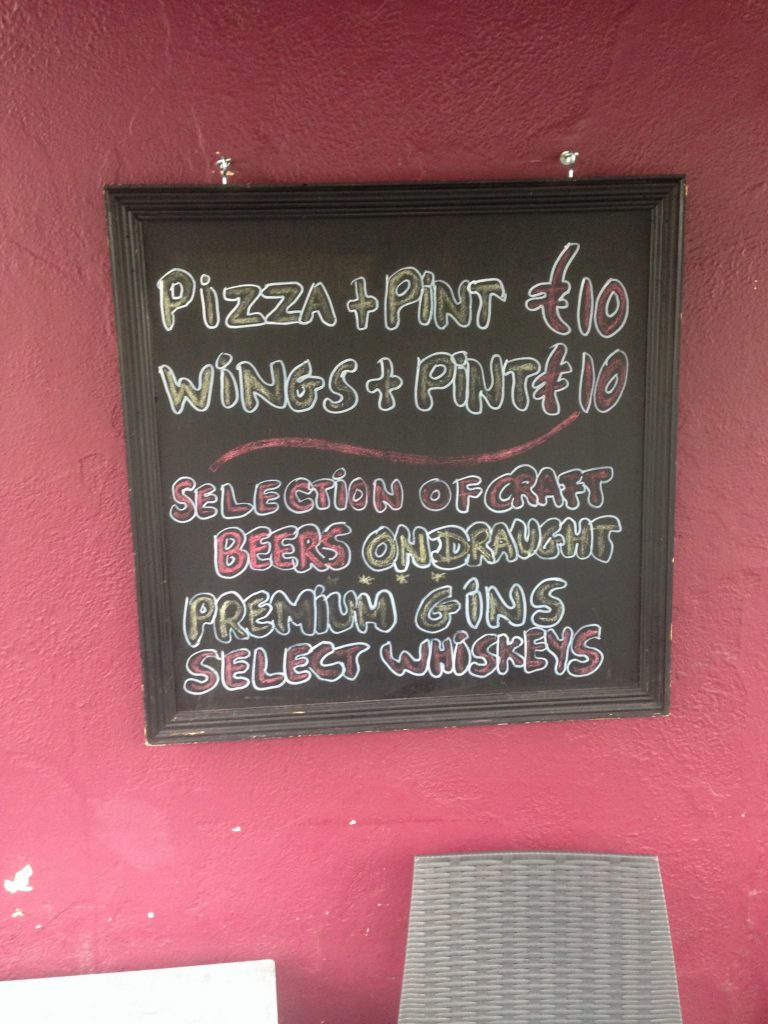 PiZZA + PiNT €10
WiNGS + PiNT €10
SELECTiON OF CRAFT
BEERS ON DRAUGHT
* * * *
PREMiUM GiNS
SELECT WHiSKEYS